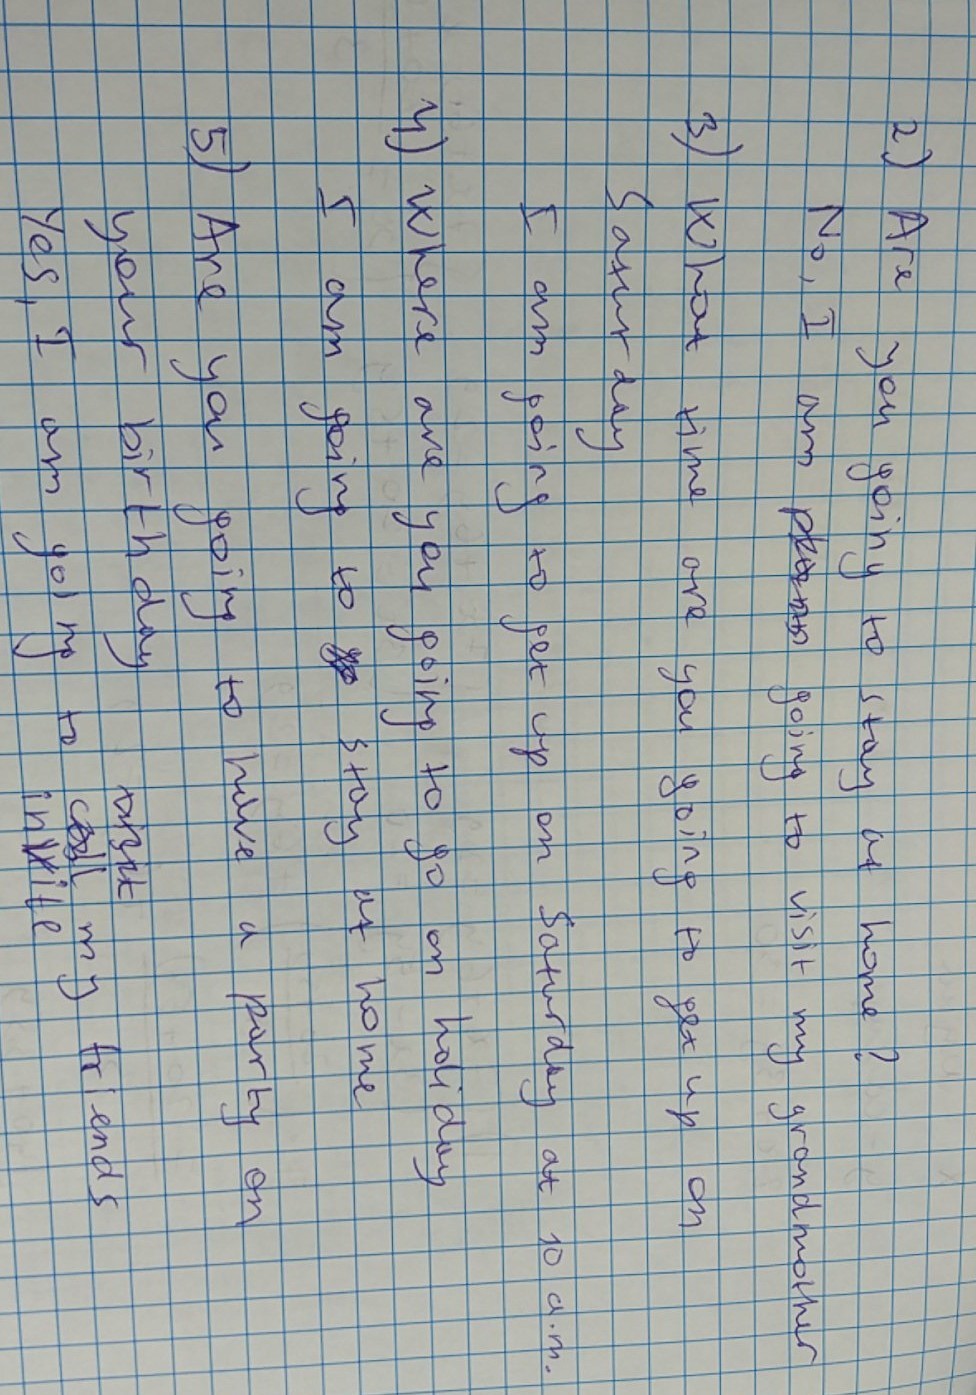 2) Are you going to stay at home?
No, I am going to visit my grandmother
3) What time are you going to get up on
Saturday
I am going to get up on Saturday at 10 a.m.
4) Where are you going to go on holiday
I am going to stay at home
5) Are you going to have a party on
your birthday
Yes, I am going to call my friends
invite